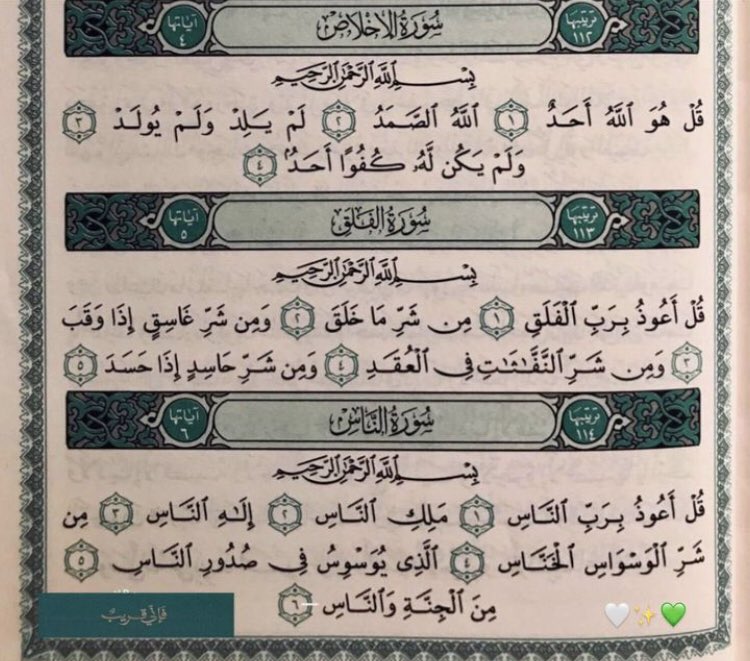 ترتيبها ١١٢ سُورَةُ الإِخْلَاصِ آياتها ٤
بِسْمِ ٱللَّهِ ٱلرَّحْمَٰنِ ٱلرَّحِيمِ
قُلْ هُوَ ٱللَّهُ أَحَدٌ ١ ٱللَّهُ ٱلصَّمَدُ ٢ لَمْ يَلِدْ وَلَمْ يُولَدْ ٣
وَلَمْ يَكُن لَّهُۥ كُفُوًا أَحَدٌۢ ٤
ترتيبها ١١٣ سُورَةُ الفَلَقِ آياتها ٥
بِسْمِ ٱللَّهِ ٱلرَّحْمَٰنِ ٱلرَّحِيمِ
قُلْ أَعُوذُ بِرَبِّ ٱلْفَلَقِ ١ مِن شَرِّ مَا خَلَقَ ٢ وَمِن شَرِّ غَاسِقٍ إِذَا وَقَبَ
٣ وَمِن شَرِّ ٱلنَّفَّٰثَٰتِ فِى ٱلْعُقَدِ ٤ وَمِن شَرِّ حَاسِدٍ إِذَا حَسَدَ ٥
ترتيبها ١١٤ سُورَةُ النَّاسِ آياتها ٦
بِسْمِ ٱللَّهِ ٱلرَّحْمَٰنِ ٱلرَّحِيمِ
قُلْ أَعُوذُ بِرَبِّ ٱلنَّاسِ ١ مَلِكِ ٱلنَّاسِ ٢ إِلَٰهِ ٱلنَّاسِ ٣ مِن
شَرِّ ٱلْوَسْوَاسِ ٱلْخَنَّاسِ ٤ ٱلَّذِى يُوَسْوِسُ فِى صُدُورِ ٱلنَّاسِ ٥
مِنَ ٱلْجِنَّةِ وَٱلنَّاسِ ٦
فَإِنِّي قَرِيبٌ